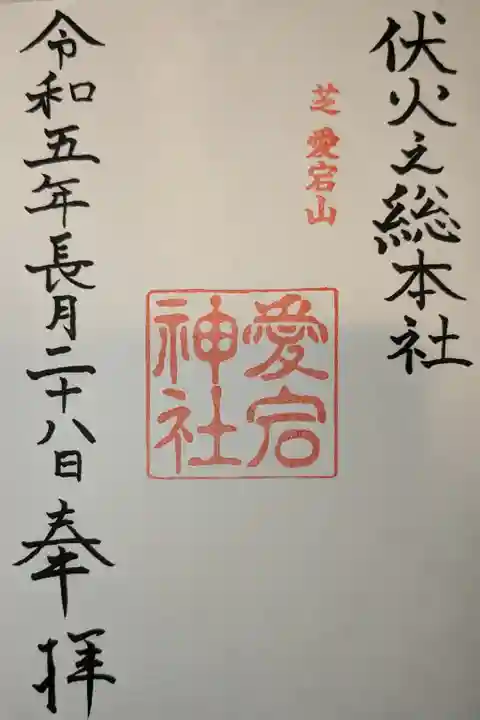 伏火之総本社
芝愛宕山
愛宕
神社
令和五年長月二十八日奉拝